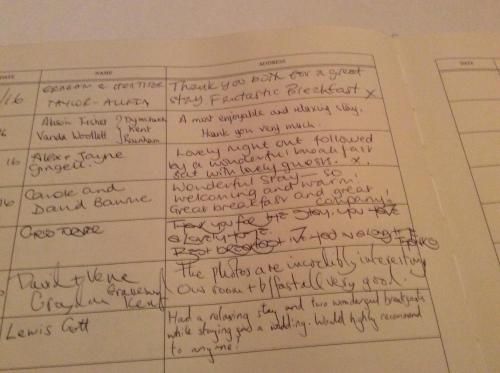 DATE NAME ADDRESS DATE
/16 GRAHAM & Thank you both for a great
TAYLOR- stay Fantastic Breakfast x
Alison Fisher Dymchurch A most enjoyable and relaxing stay.
Vanda Woollett Kent Thank you very much.
16 Alex + Jayne Lovely night out followed
by a wonderful breakfast
sat with lovely guests. x.
16 Carole and Wonderful stay – so
David welcoming and warm!
Great breakfast and great
company!
Thank you for the stay, you have
a lovely
Best breakfast I've had in a long time
David + Gravesend The photos are incredibly interesting
Kent Our room + b/fast all very good.
Lewis Gott Had a relaxing stay and two wonderful breakfasts
while staying for a wedding. Would highly recommend
to anyone!